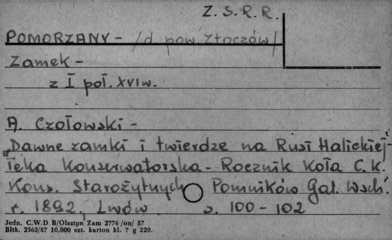 Z. S. R. R.
POMORZANY - /d pow Złoczów/
Zamek -
z I poł. XVI w.
A. Czołowski -
"Dawne zamki i twierdze na Rusi Halickiej"
Teka Konserwatorska - Rocznik Koła C. K.
Kons. Starożytnych Pomników Gal. Wsch.
r. 1892. Lwów s. 100 - 102
Jedn. C.W.D B/Olsztyn Zam 2776/on/ 57
Bltk. 2563/57 10.000 szt. karton kl. 7 g 220.